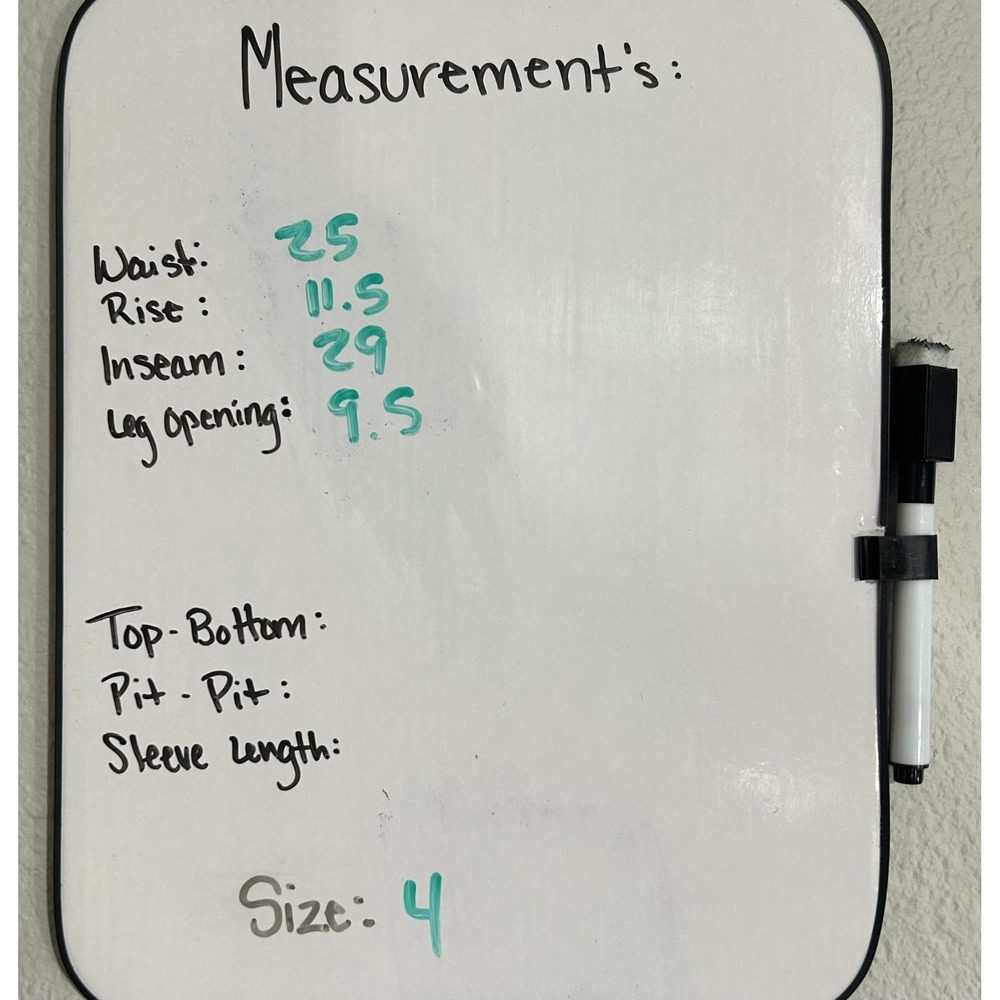 Measurement's:
Waist: 25
Rise: 11.5
Inseam: 29
Leg opening: 9.5
Top-Bottom:
Pit-Pit:
Sleeve Length:
Size: 4